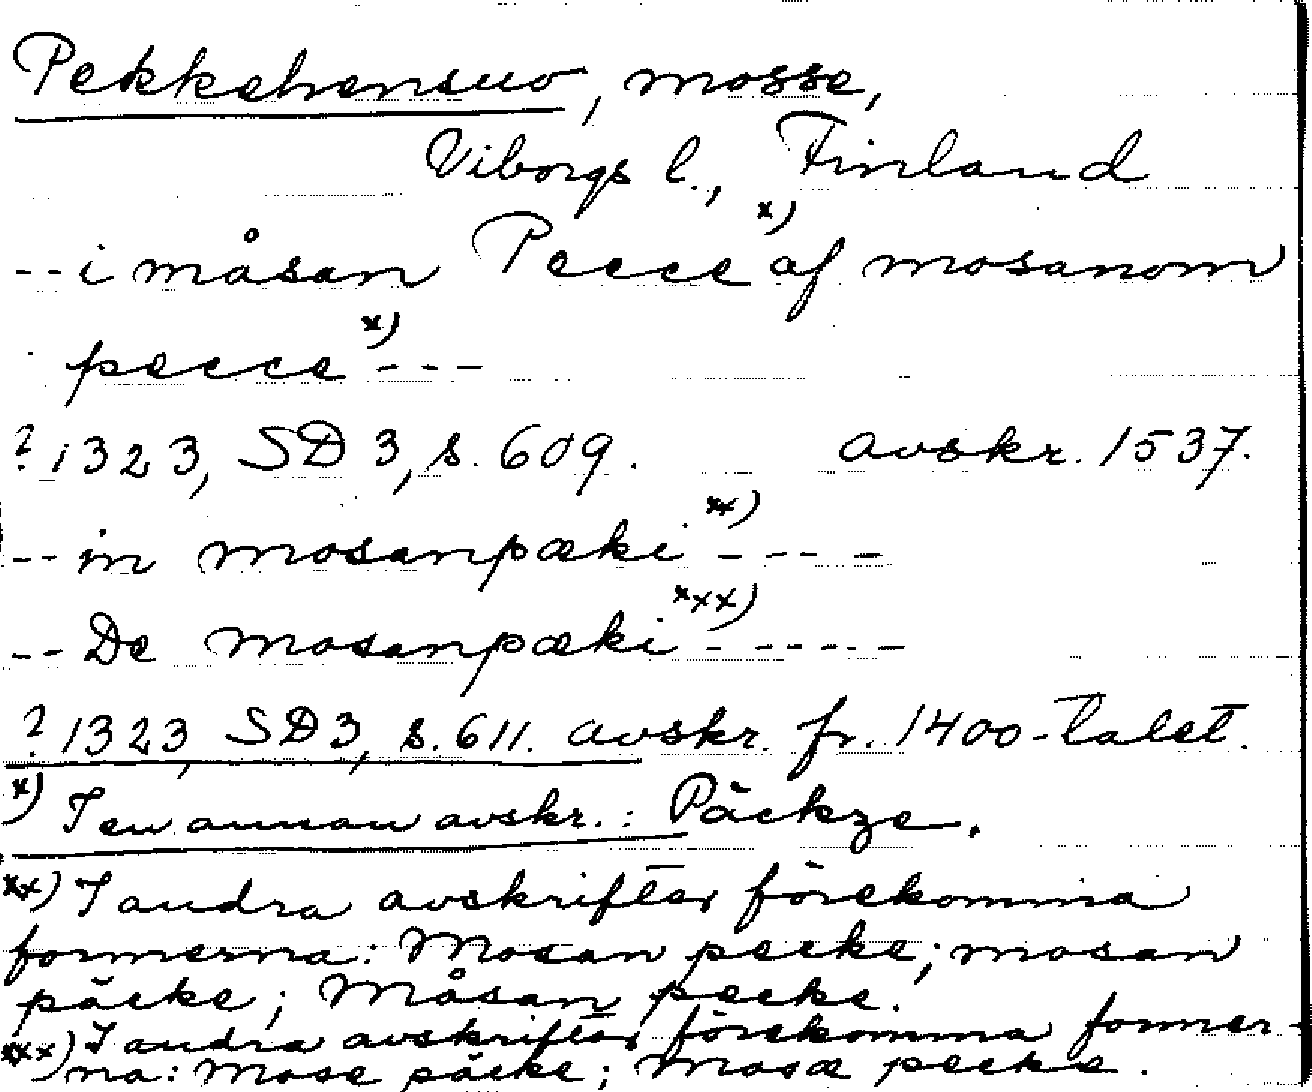 Pekkehensuo, mosse,
Viborgs l., Finland
--i måsan Pecce x) af mosanom
pecce x) ---
? 1323, SD 3, s. 609. avskr. 1537.
--in mosanpæki xx) ----
--De mosanpæki xxx) -----
? 1323, SD3, s. 611. avskr. fr. 1400-talet.
x) I en annan avskr.: Päckze.
xx) I andra avskrifter förekomma
formerna: Mosan pecke; mosan
päcke; Måsan pecke.
xxx) I andra avskrifter förekomma former-
na: Mose päcke; Mosæ pecke.